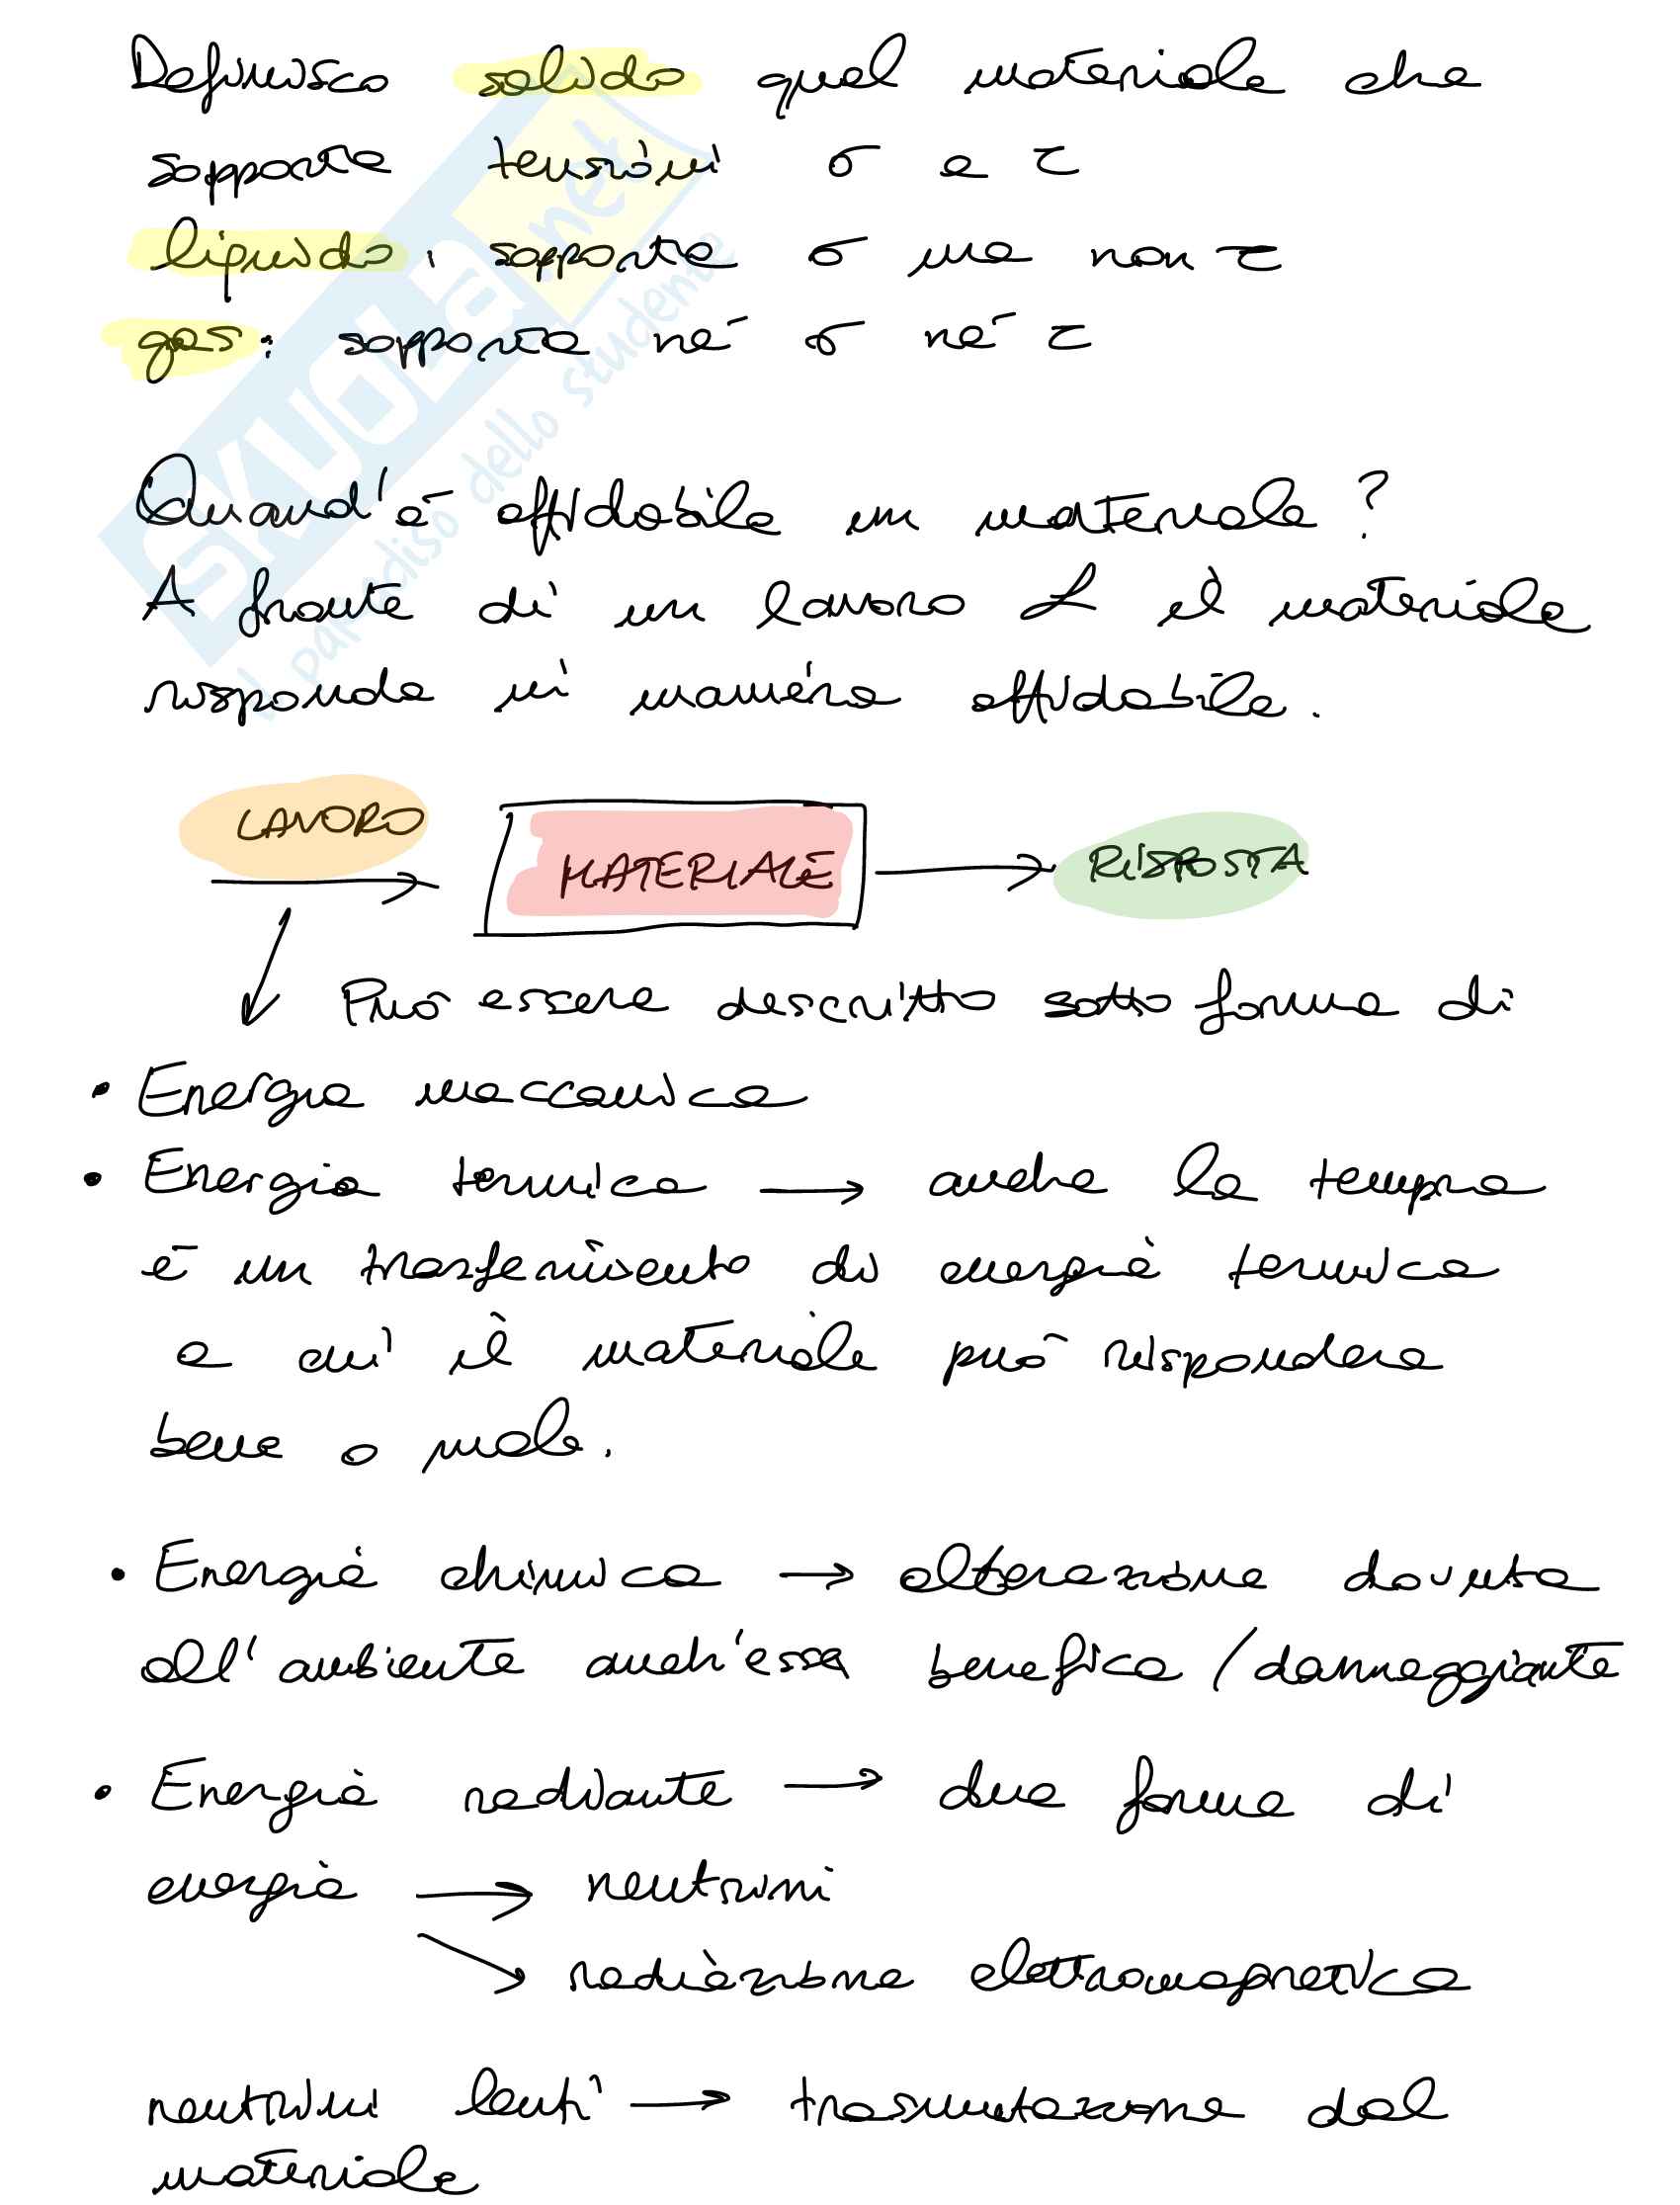 Definisco solido quel materiale che
sopporta tensioni σ e τ
liquido: sopporta σ ma non τ
gas: sopporta né σ né τ
Quand'è affidabile un materiale?
A fronte di un lavoro L il materiale
risponde in maniera affidabile.
LAVORO
MATERIALE
RISPOSTA
Può essere descritto sotto forma di
• Energia meccanica
• Energia termica → anche la tempra
è un trasferimento di energia termica
a cui il materiale può rispondere
bene o male.
• Energia chimica → alterazione dovuta
all'ambiente anch'essa benefica / danneggiante
• Energia radiante → due forme di
energia → neutrini
→ radiazione elettromagnetica
neutrini lenti → trasmutazione del
materiale
SKUOLA.net
il paradiso dello studente